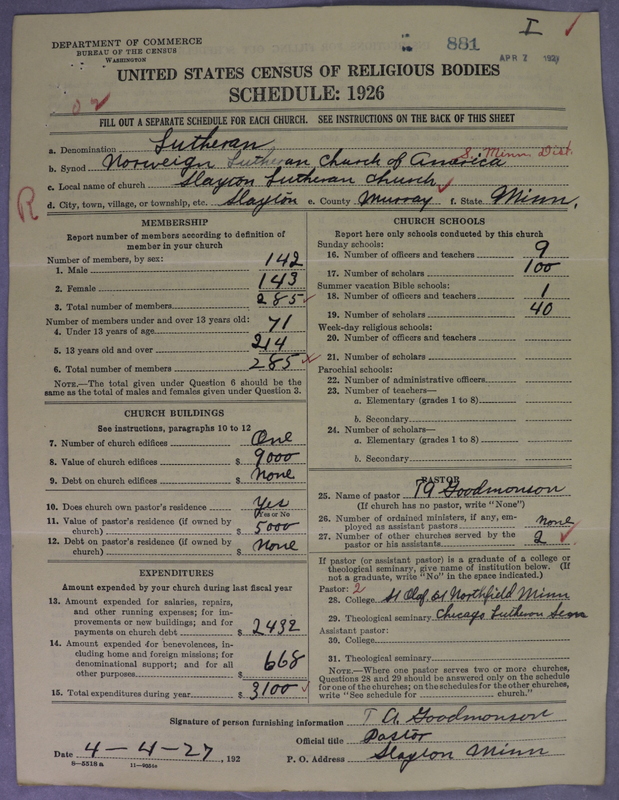 I
DEPARTMENT OF COMMERCE
BUREAU OF THE CENSUS
WASHINGTON
881
APR 7 1927
UNITED STATES CENSUS OF RELIGIOUS BODIES
SCHEDULE: 1926
FILL OUT A SEPARATE SCHEDULE FOR EACH CHURCH. SEE INSTRUCTIONS ON THE BACK OF THIS SHEET
a. Denomination Lutheran
b. Synod Norweign Lutheran Church of America S. Minn. Dist.
c. Local name of church Slayton Lutheran Church
R
d. City, town, village, or township, etc. Slayton e. County Murray f. State Minn.
MEMBERSHIP
Report number of members according to definition of
member in your church
Number of members, by sex:
1. Male 142
2. Female 143
3. Total number of members 285
Number of members under and over 13 years old:
4. Under 13 years of age 71
5. 13 years old and over 214
6. Total number of members 285
NOTE.—The total given under Question 6 should be the
same as the total of males and females given under Question 3.
CHURCH BUILDINGS
See instructions, paragraphs 10 to 12
7. Number of church edifices One
8. Value of church edifices $ 9000
9. Debt on church edifices $ None
10. Does church own pastor's residence Yes
(Yes or No
11. Value of pastor's residence (if owned by
church) $ 5000
12. Debt on pastor's residence (if owned by
church) $ None
EXPENDITURES
Amount expended by your church during last fiscal year
13. Amount expended for salaries, repairs,
and other running expenses; for im-
provements or new buildings; and for
payments on church debt $ 2432
14. Amount expended for benevolences, in-
cluding home and foreign missions; for
denominational support; and for all
other purposes $ 668
15. Total expenditures during year $ 3100
CHURCH SCHOOLS
Report here only schools conducted by this church
Sunday schools:
16. Number of officers and teachers 9
17. Number of scholars 100
Summer vacation Bible schools:
18. Number of officers and teachers 1
19. Number of scholars 40
Week-day religious schools:
20. Number of officers and teachers
21. Number of scholars
Parochial schools:
22. Number of administrative officers
23. Number of teachers—
a. Elementary (grades 1 to 8)
b. Secondary
24. Number of scholars—
a. Elementary (grades 1 to 8)
b. Secondary
PASTOR
25. Name of pastor T A Goodmonson
(If church has no pastor, write "None")
26. Number of ordained ministers, if any, em-
ployed as assistant pastors none
27. Number of other churches served by the
pastor or his assistants 2
If pastor (or assistant pastor) is a graduate of a college or
theological seminary, give name of institution below. (If
not a graduate, write "No" in the space indicated.)
Pastor: 2
28. College St Olaf, Northfield Minn
29. Theological seminary Chicago Lutheran Sem
Assistant pastor:
30. College
31. Theological seminary
NOTE.—Where one pastor serves two or more churches,
Questions 28 and 29 should be answered only on the schedule
for one of the churches; on the schedules for the other churches,
write "See schedule for church."
Signature of person furnishing information T A. Goodmonson
Official title Pastor
Date 4-4-27, 192 P. O. Address Slayton Minn
8-5318a